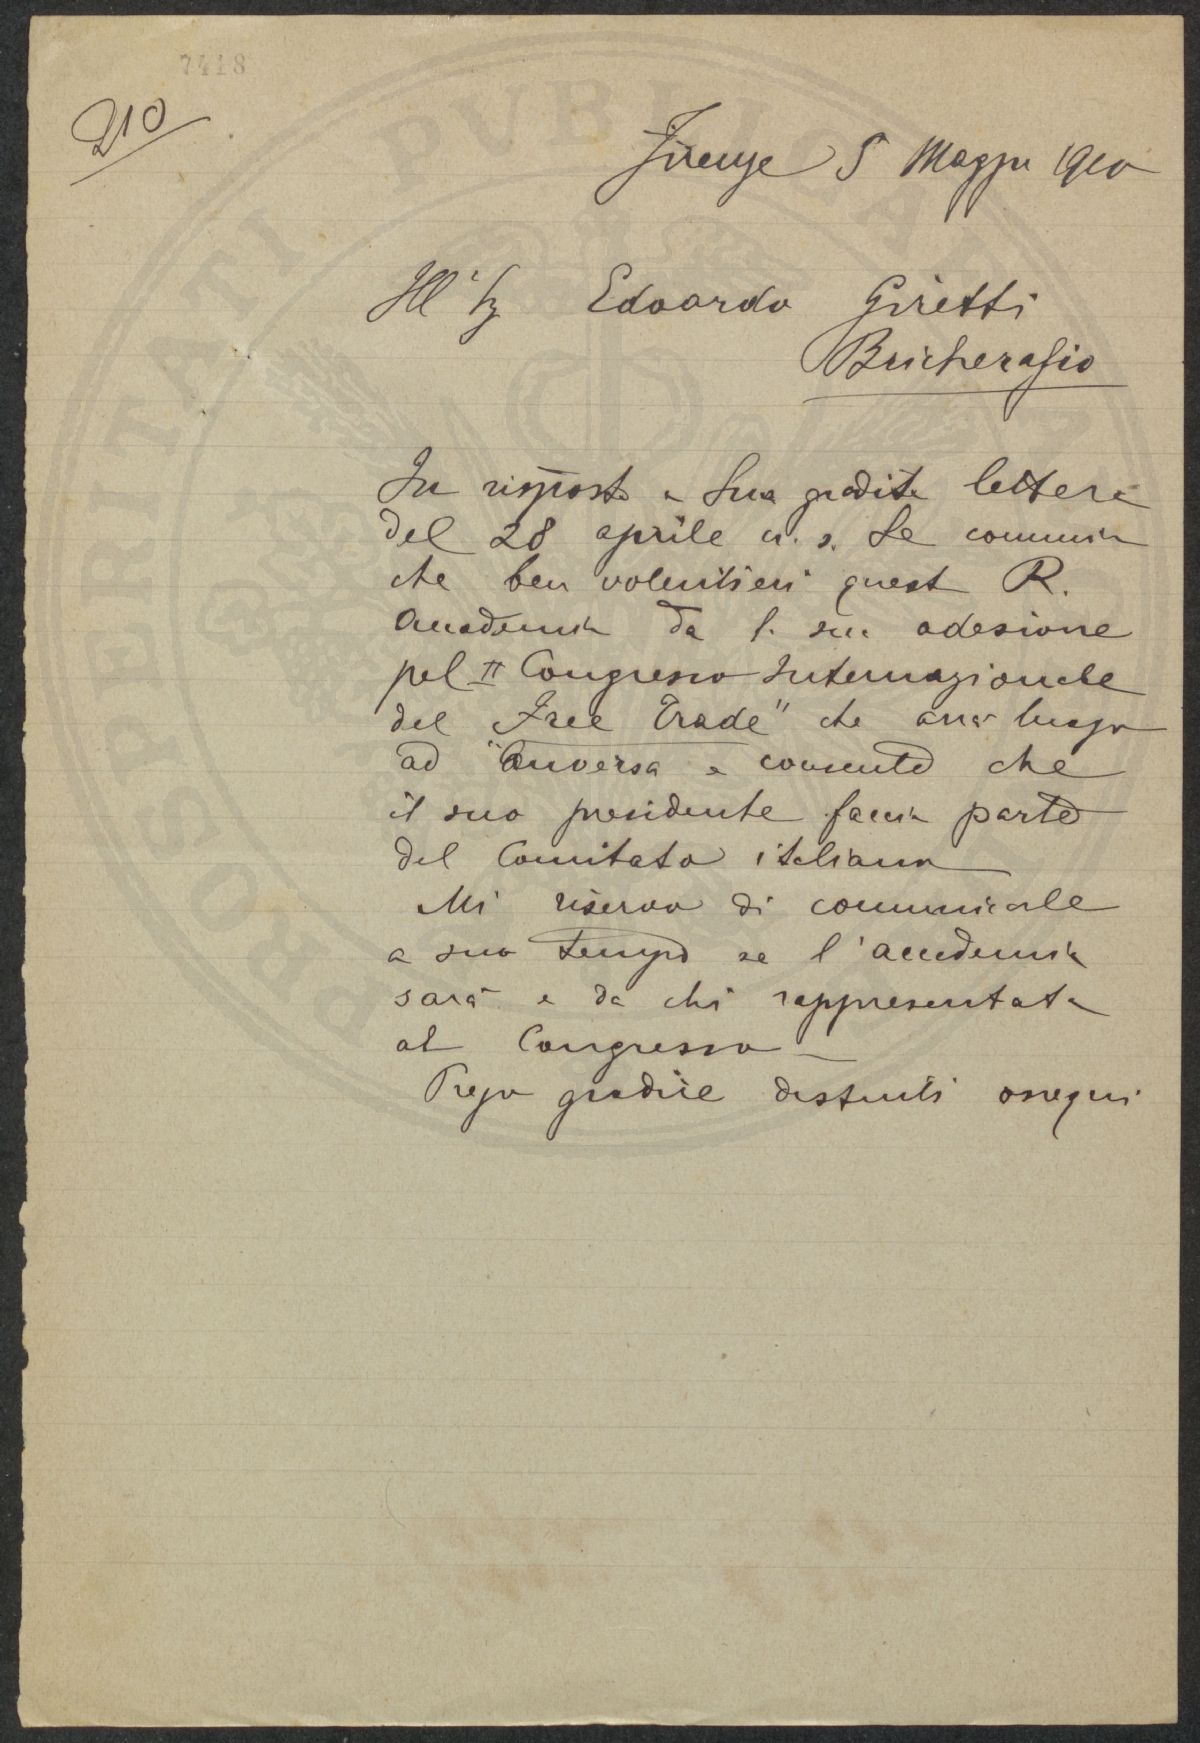 7418
210
Firenze 5 Maggio 1910
Ill. Sg Edoardo Giretti
Bricherasio
In risposta a Sua gradita lettera
del 28 aprile u. s. Le comunico
che ben volentieri quest R.
Accademia da la sua adesione
pel II Congresso Internazionale
del Free Trade" che avrà luogo
ad "Anversa e consente che
il suo presidente faccia parte
del Comitato italiano
Mi riservo di comunicarle
a suo tempo se l'accademia
sarà e da chi rappresentata
al Congresso
Prego gradire distinti ossequi